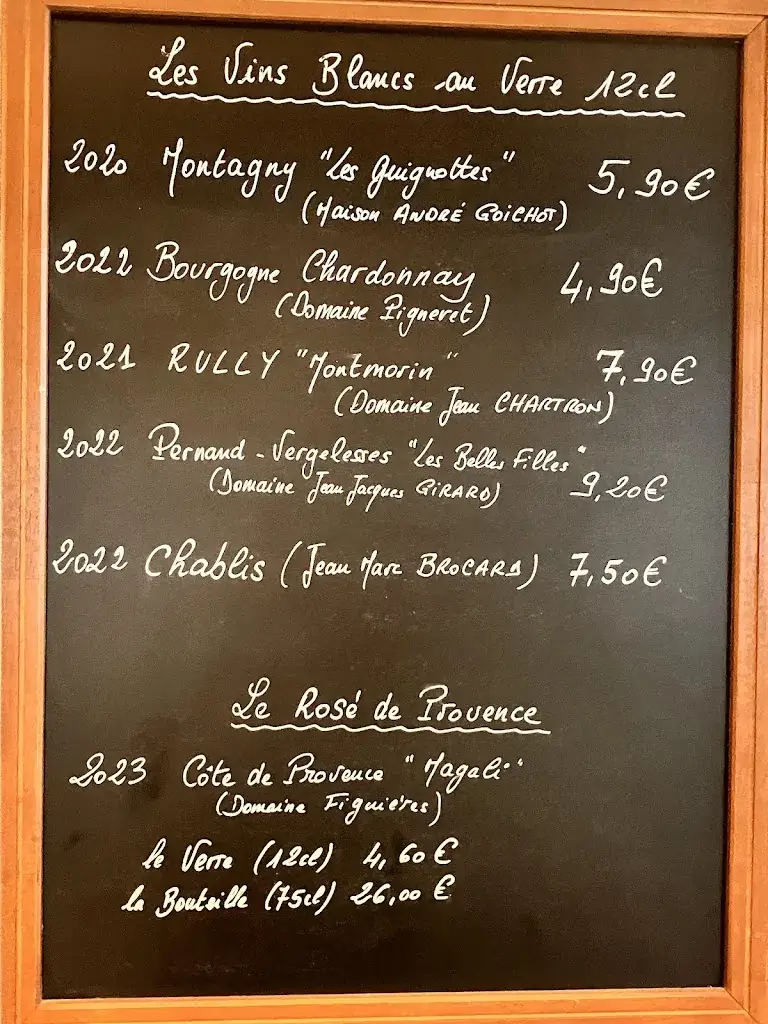 Les Vins Blancs au Verre 12cl
2020 Montagny "Les Guignottes" 5,90€
(Maison ANDRÉ GOICHOT)
2022 Bourgogne Chardonnay 4,90€
(Domaine Pigneret)
2021 RULLY "Montmorin" 7,90€
(Domaine Jean CHARTRON)
2022 Pernand-Vergelesses "Les Belles Filles"
(Domaine Jean Jacques GIRARD) 9,20€
2022 Chablis (Jean Marc BROCARD) 7,50€
Le Rosé de Provence
2023 Côte de Provence "Magali"
(Domaine Figuières)
le Verre (12cl) 4,60€
la Bouteille (75cl) 26,00 €